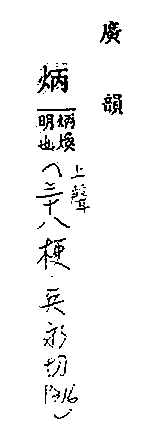 廣韻
炳
炳煥
明也
上聲
(三十八梗·兵永切P316)